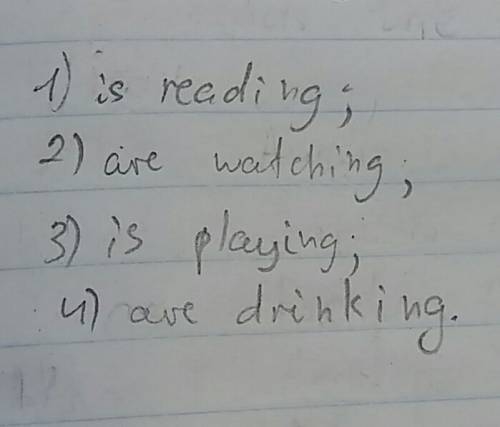 1) is reading;
2) are watching;
3) is playing;
4) are drinking.